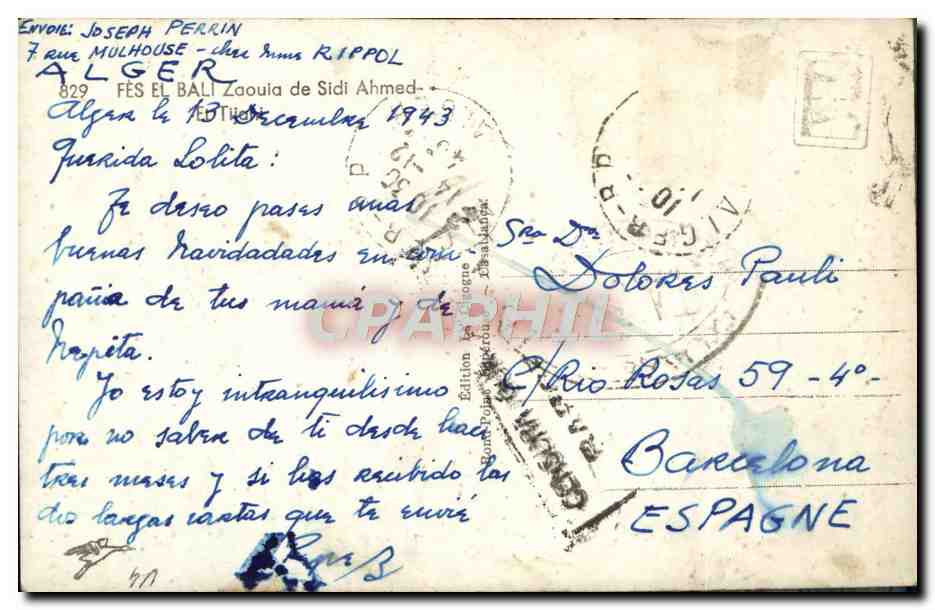 Envoie: JOSEPH PERRIN
7 rue MULHOUSE - chez Mme RIPPOL
ALGER
829 FÈS EL BALI Zaouia de Sidi Ahmed
El Tijani
Alger le 13 Decembre 1943
Querida Lolita:
Te deseo pases unas
buenas Navidadades en com-
pañia de tus mamá y de
Pepita.
Yo estoy intranquilisimo
por no saber de ti desde hace
tres meses y si has recibido las
dos largas cartas que te envié
Pepe
Édition La Cigogne
Rond-Point - Casablanca
Sra Dña
Dolores Pauli
C/ Rio Rosas 59 - 4º -
Barcelona
ESPAGNE
ALGER-RP
CENSURA
CPAPHIL